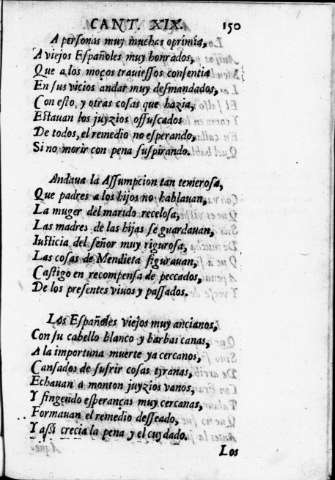 CANT. XIX. 150
A personas muy muchas oprimia,
A viejos Españoles muy honrados,
Que a los moços trauiessos consentia
En sus vicios andar muy desmandados,
Con esto, y otras cosas que hazia,
Estauan los juyzios offuscados
De todos, el remedio no esperando,
Si no morir con pena suspirando.
Andaua la Assumpcion tan temerosa,
Que padres a los hijos no hablauan,
La muger del marido recelosa,
Las madres de las hijas se guardauan,
Iusticia del señor muy rigurosa,
Las cosas de Mendieta figurauan,
Castigo en recompensa de peccados,
De los presentes viuos y passados.
Los Españoles viejos muy ancianos,
Con su cabello blanco y barbas canas,
A la importuna muerte ya cercanos,
Cansados de sufrir cosas tyranas,
Echauan a monton juyzios vanos,
Y fingendo esperanças muy cercanas,
Formauan el remedio desseado,
Y assi crecia la pena y el cuydado.
Los